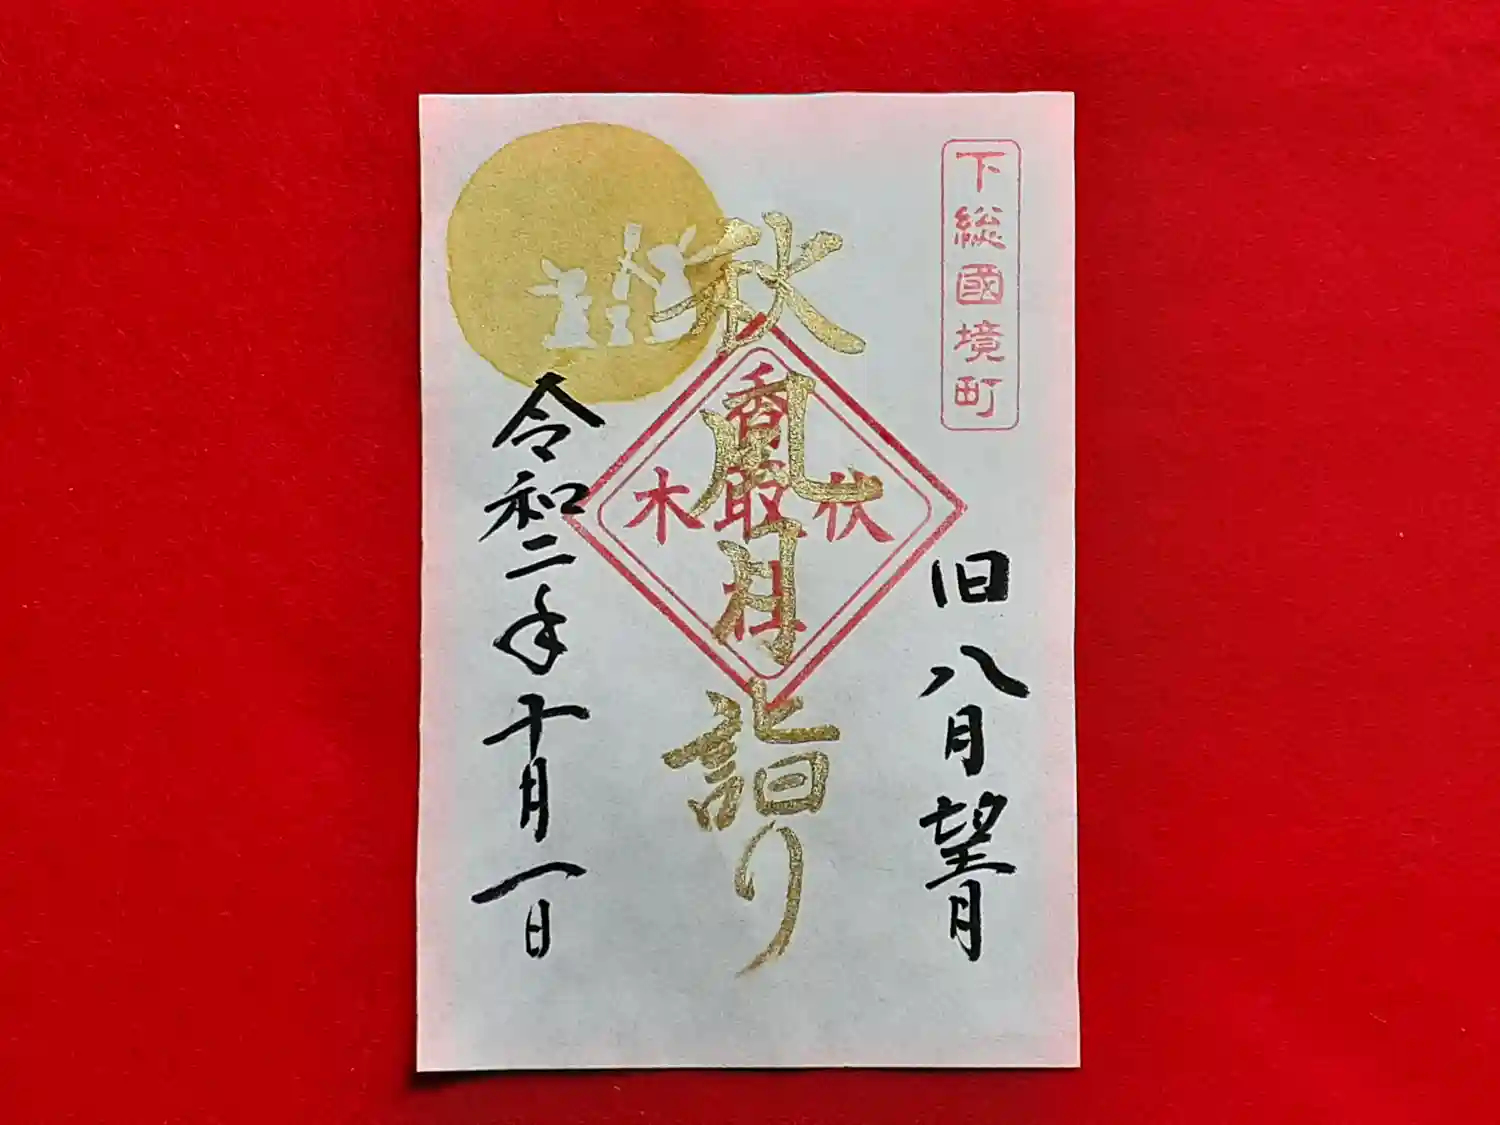 下総國境町
旧八月望月
秋風月詣り
香取社
伏木
令和二年十月一日